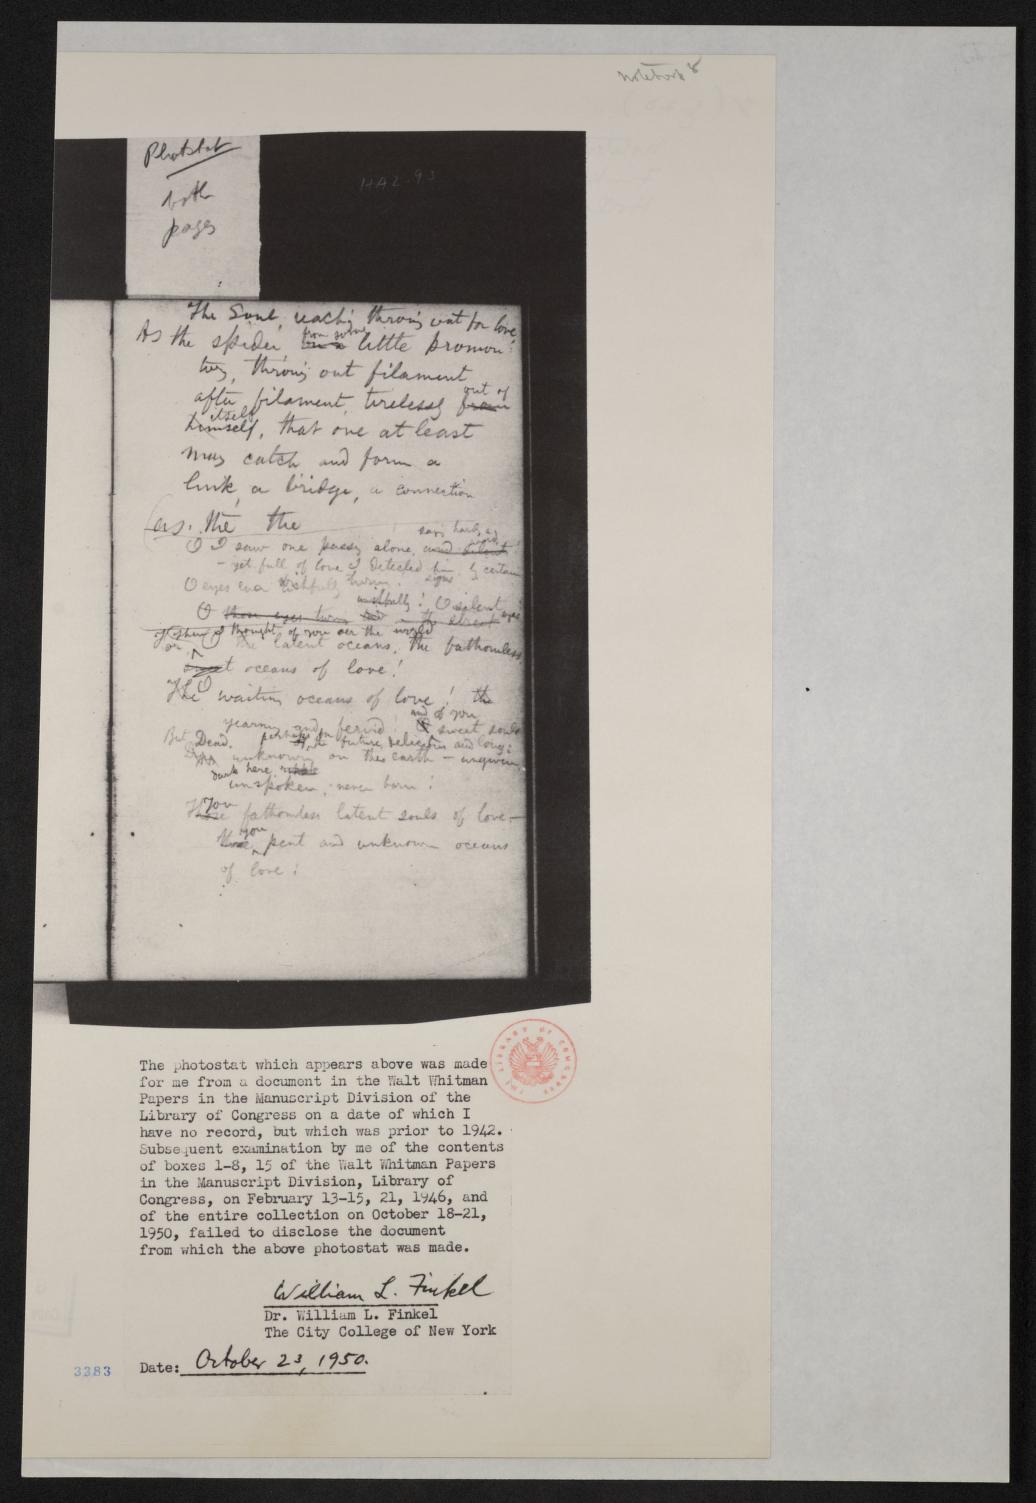 notebook 8
Photostat
both
pages
HAL-93
The Soul, reaching, throwing out for love
As the spider, from some little promon-
tory, throwing out filament
after filament, tirelessly out of
itself
himself, that one at least
may catch and form a
link, a bridge, a connection
the the
O I saw one passing alone, saying hardly a word
– yet full of love I detected him, by certain signs
O eyes ever wishfully turning
wishfully! O silent eyes
O those eyes turning the street
I thought of you over the world
or the latent oceans, the fathomless
oceans of love!
The O waiting oceans of love!
yearning and fervid! and of you sweet souls
But Dead, perhaps in the future, delicious and long:
unknown on this earth – ungiven
dark here
unspoken, never born!
You
Those fathomless latent souls of love –
you
those pent and unknown oceans
of love!
THE LIBRARY OF CONGRESS
The photostat which appears above was made
for me from a document in the Walt Whitman
Papers in the Manuscript Division of the
Library of Congress on a date of which I
have no record, but which was prior to 1942.
Subsequent examination by me of the contents
of boxes 1-8, 15 of the Walt Whitman Papers
in the Manuscript Division, Library of
Congress, on February 13-15, 21, 1946, and
of the entire collection on October 18-21,
1950, failed to disclose the document
from which the above photostat was made.
William L. Finkel
Dr. William L. Finkel
The City College of New York
3383 Date: October 23, 1950.